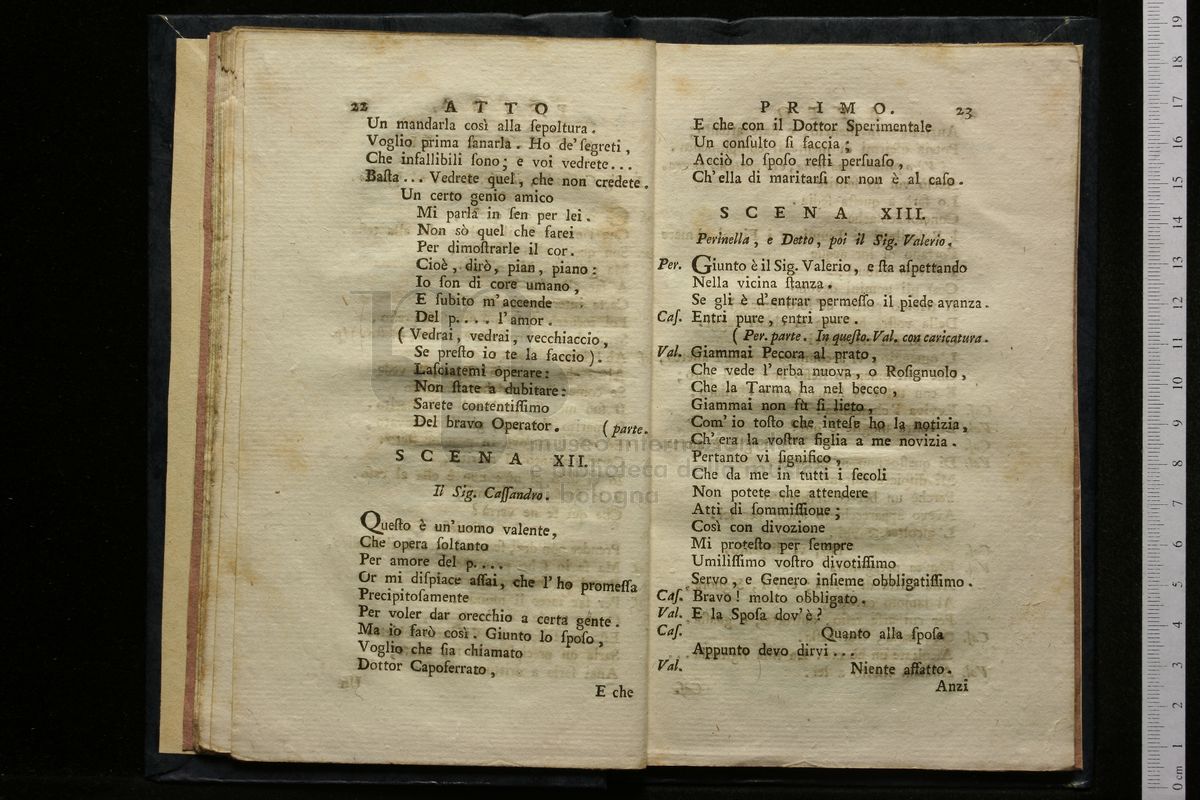 22 ATTO
Un mandarla così alla ſepoltura.
Voglio prima ſanarla. Ho de' ſegreti,
Che infallibili ſono; e voi vedrete...
Baſta... Vedrete quel, che non credete.
Un certo genio amico
Mi parla in ſen per lei.
Non sò quel che farei
Per dimoſtrarle il cor.
Cioè, dirò, pian, piano:
Io ſon di core umano,
E ſubito m'accende
Del p.... l'amor.
(Vedrai, vedrai, vecchiaccio,
Se preſto io te la faccio).
Laſciatemi operare:
Non ſtate a dubitare:
Sarete contentiſſimo
Del bravo Operator. (parte.
SCENA XII.
Il Sig. Caſſandro.
Queſto è un'uomo valente,
Che opera ſoltanto
Per amore del p....
Or mi diſpiace aſſai, che l'ho promeſſa
Precipitoſamente
Per voler dar orecchio a certa gente.
Ma io farò così. Giunto lo ſpoſo,
Voglio che ſia chiamato
Dottor Capoferrato,
E che
PRIMO. 23
E che con il Dottor Sperimentale
Un conſulto ſi faccia;
Acciò lo ſpoſo reſti perſuaſo,
Ch'ella di maritarſi or non è al caſo.
SCENA XIII.
Perinella, e Detto, poi il Sig. Valerio.
Per. Giunto è il Sig. Valerio, e ſta aſpettando
Nella vicina ſtanza.
Se gli è d'entrar permeſſo il piede avanza.
Caſ. Entri pure, entri pure.
(Per. parte. In queſto. Val. con caricatura.
Val. Giammai Pecora al prato,
Che vede l'erba nuova, o Roſignuolo,
Che la Tarma ha nel becco,
Giammai non fu ſi lieto,
Com'io toſto che inteſe ho la notizia,
Ch'era la voſtra figlia a me novizia.
Pertanto vi ſignifico,
Che da me in tutti i ſecoli
Non potete che attendere
Atti di ſommiſſioue;
Così con divozione
Mi proteſto per ſempre
Umiliſſimo voſtro divotiſſimo
Servo, e Genero inſieme obbligatiſſimo.
Caſ. Bravo! molto obbligato.
Val. E la Spoſa dov'è?
Caſ. Quanto alla ſpoſa
Appunto devo dirvi...
Val. Niente affatto.
Anzi
museo internazionale
e biblioteca della musica
bologna
0 cm 1 2 3 4 5 6 7 8 9 10 11 12 13 14 15 16 17 18 19